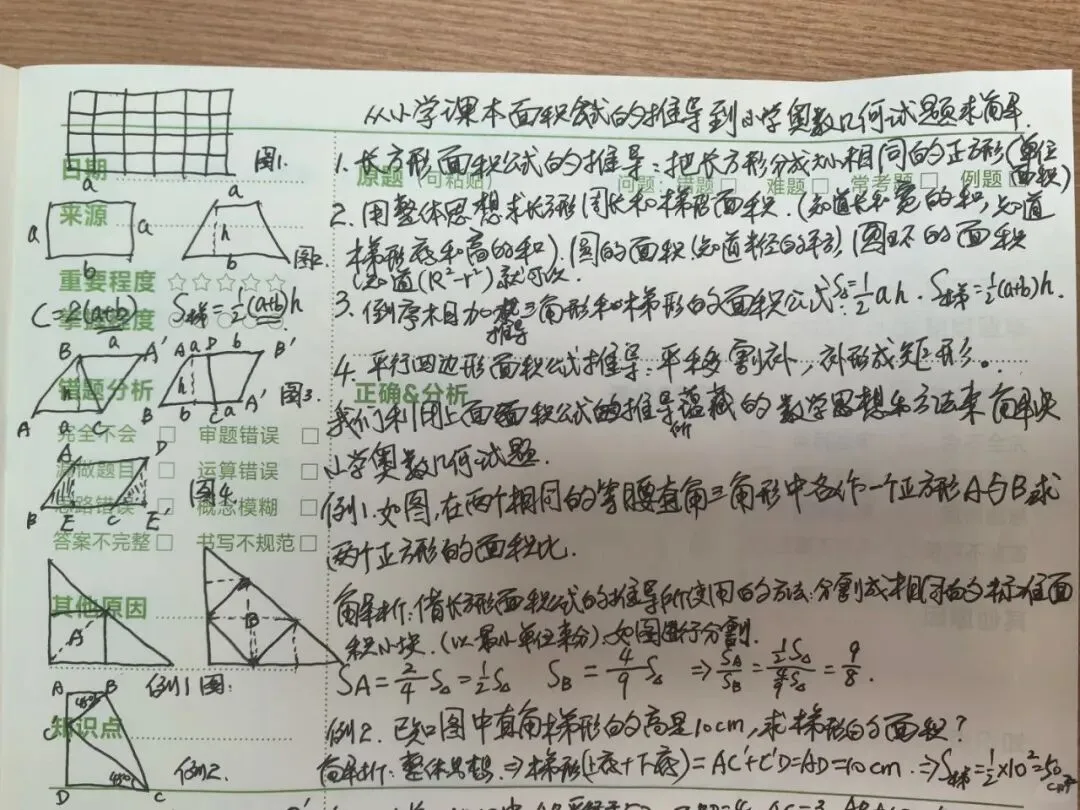 从小学课本面积公式的推导到小学奥数几何试题来简单.
1. 长方形面积公式的推导:把长方形分成大小相同的正方形(单位面积)
2. 用整体思想求长方形周长和梯形面积.(知道长和宽的积,知道
梯形底和高的和).圆的面积(知道半径的平方)圆环的面积
(知道(R²-r²)就可以.
3. 倒序相加 推导三角形和梯形的面积公式S△=½ah. S梯=½(a+b)h.
4. 平行四边形面积公式推导:平移割补,补形成矩形。
我们利用上面面积公式的推导所蕴藏的数学思想和方法来解决
小学奥数几何试题.
例1.如图,在两个相同的等腰直角三角形中各作一个正方形A与B求
两个正方形的面积比.
解析:借长方形面积公式的推导所使用的方法:分割成相同的标准面
积小块.(以最小单位来分).如图进行分割.
SA=2/4 S△=½S△ SB=4/9 S△ ⇒ SA/SB=½S△/(4/9 S△)=9/8.
例2. 已知图中直角梯形的高是10cm,求梯形的面积?
解析:整体思想.⇒梯形(上底+下底)=AC'+C'D=AD=10cm.⇒S梯=½×10²=50cm²
图1.
a
a
a
a
b
h
b
图2
C=2(a+b)
S梯=½(a+b)h
B
a
A'
h
A
a
C
A
a
D
b
B'
h
B
b
C
a
A'
图3.
A
D
B
E
C
E'
图4.
A
B
例1图.
A
B
45°
C'
45°
D
C
例2.
日期
来源
重要程度 ☆☆☆☆☆
掌握程度
错题分析
完全不会 □ 审题错误 □
漏做题目 □ 运算错误 □
思路错误 □ 概念模糊 □
答案不完整 □ 书写不规范 □
其他原因
知识点
原题(可粘贴)
问题:错题 □ 难题 □ 常考题 □ 例题 □
正确&分析